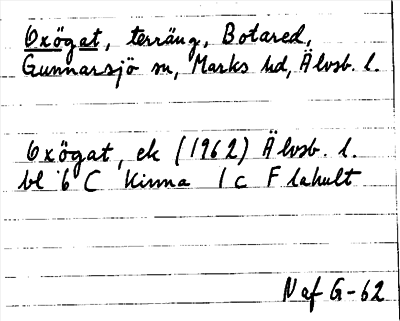 Oxögat, terräng, Botared,
Gunnarsjö sn, Marks hd, Älvsb. l.
Oxögat, ek (1962) Älvsb. l.
bl 6 C Kinna 1 c F lahult
Naf G-62